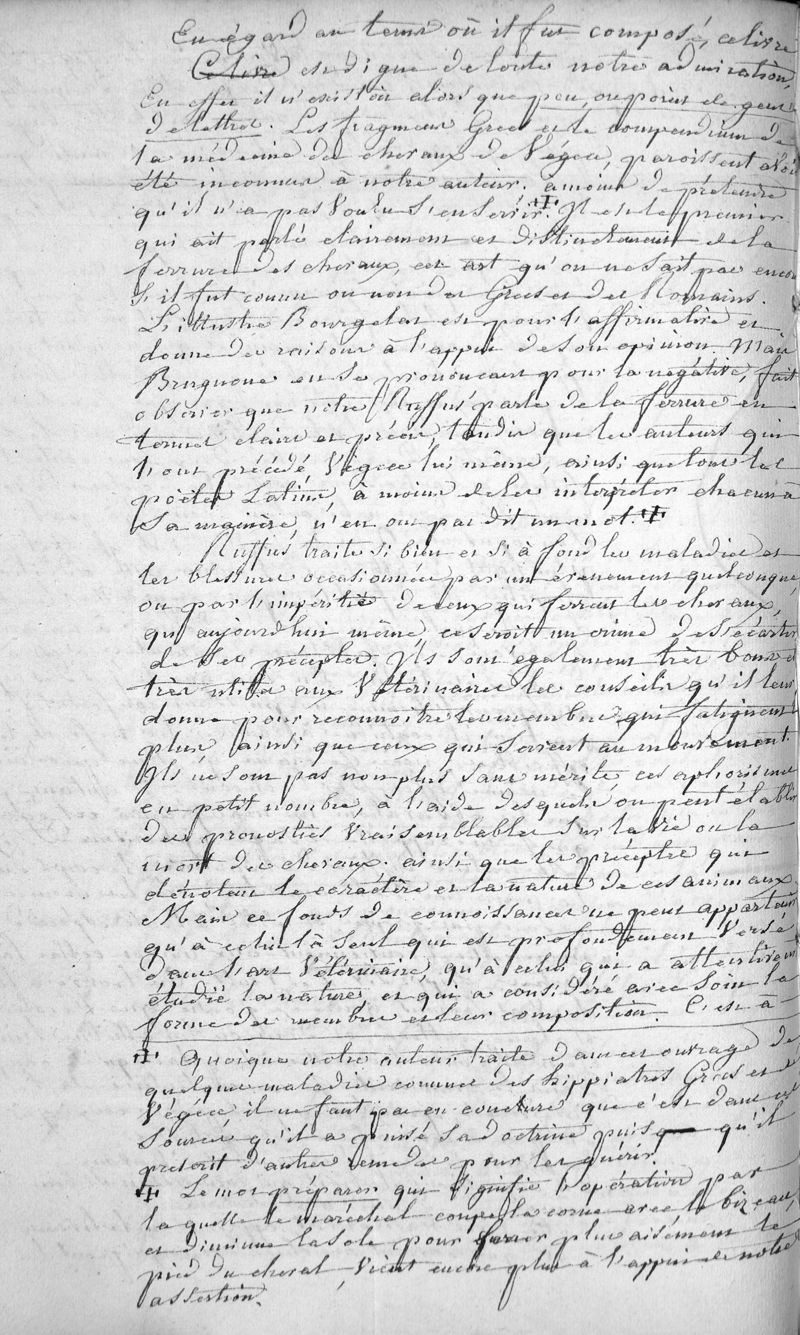 Eu égard au tems où il fut composé, ce livre
Ce livre est digne de toute notre admiration,
En effet il n'existoit alors que peu, ou point de gens
de lettres. Les fragmens Grecs et le compendium de
la médecine des chevaux de Végèce, paroissent avoir
été inconnus à notre auteur. a moins de prétendre
qu'il n'a pas voulu s'en servir. Il est le premier
qui ait parlé clairement et distinctement de la
ferrure des chevaux, cet art qu'on ne sait pas encore
s'il fut connu ou non des Grecs et des Romains.
L'illustre Bourgelat est pour l'affirmative et
donne des raisons à l'appui de son opinion, Mais
Brugnone en se prononçant pour la négative, fait
observer que notre Ruffus parle de la ferrure en
termes clairs et précis, tandis que les auteurs qui
l'ont précédé, Végèce lui même, ainsi que tous les
poètes Latins, à moins de les interpréter chacun à
sa manière, n'en ont pas dit un mot.
Ruffus traite si bien et si à fond les maladies et
les blessures occasionnées par un évènement quelconque,
ou par l'impéritie de ceux qui ferrent les chevaux,
qu'aujourd'hui même, ce seroit un crime de s'écarter
de ses préceptes. Ils sont également très bons et
très utiles aux Vétérinaires les conseils qu'il leur
donne pour reconnoitre les membres qui fatiguent
plus ainsi que ceux qui servent au mouvement.
Ils ne sont pas non plus sans mérite, ces aphorismes
en petit nombre, à l'aide desquels on peut établir
des pronostics vraisemblables sur la vie ou la
mort des chevaux. ainsi que les préceptes qui
dénotent le caractère et la nature de ces animaux.
Mais ce fonds de connoissances ne peut appartenir
qu'à celui là seul qui est profondement versé
dans l'art Vétérinaire, qu'à celui qui a attentivement
étudié la nature, et qui a considéré avec soin la
forme des membres et leur composition. C'est à-
Quoique notre auteur traite dans cet ouvrage de
quelques maladies connues des hippiatres Grecs et de
Végèce il ne faut pas en conclure que c'est dans ces
sources qu'il a puisé sa doctrine puisqu'il
prescrit d'autres remèdes pour les guérir.
Le mot préparer qui signifie l'opération par
la quelle le maréchal coupe la corne avec le bizeau,
et diminue la sole pour ferrer plus aisément le
pied du cheval, vient encore plus à l'appui de notre
assertion.